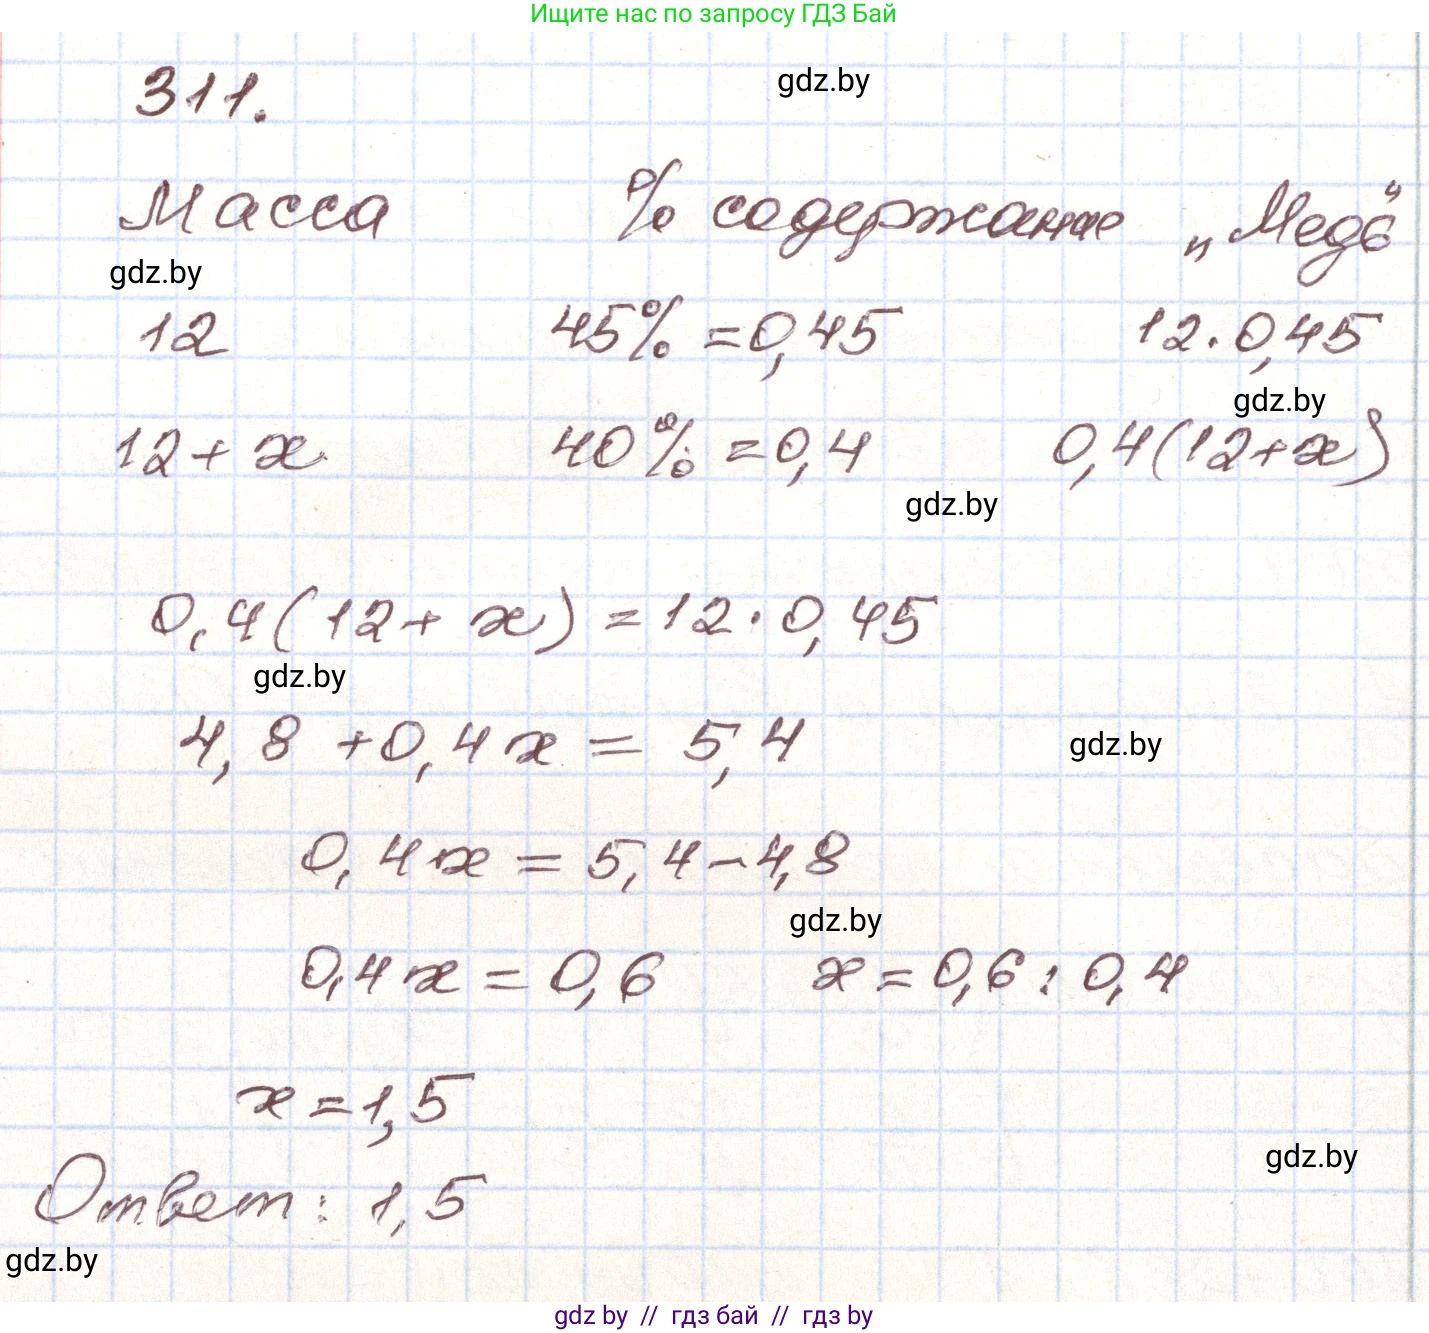 Ищите нас по запросу ГДЗ Бай
311.
gdz.by
Масса % содержание „Медь“
gdz.by
12 45% = 0,45 12 · 0,45
gdz.by
12 + x 40% = 0,4 0,4(12+x)
gdz.by
0,4(12 + x) = 12 · 0,45
gdz.by
4,8 + 0,4x = 5,4
gdz.by
0,4x = 5,4 - 4,8
gdz.by
0,4x = 0,6 x = 0,6 : 0,4
x = 1,5
gdz.by
Ответ: 1,5
gdz.by
gdz by // гдз бай // гдз by